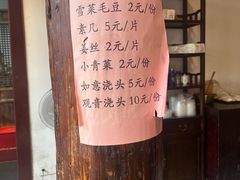 雪菜毛豆 2元/份
素几 5元/片
姜丝 2元/片
小青菜 2元/份
如意浇头 5元/份
观音浇头 10元/份